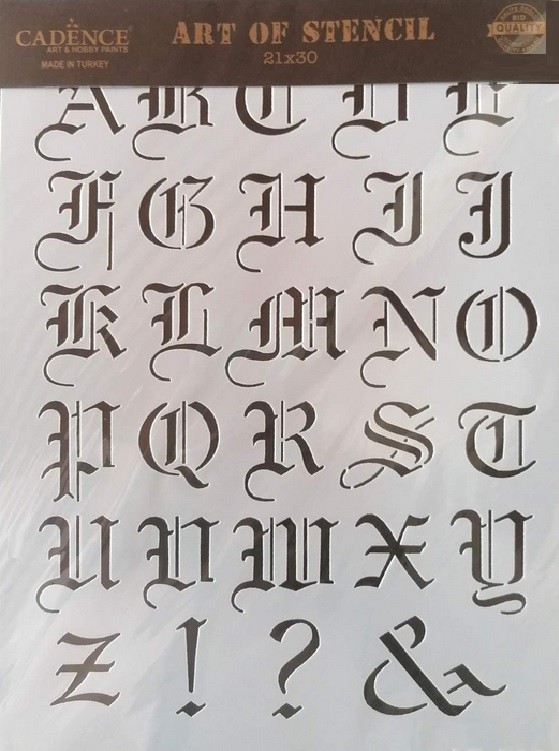 CADENCE
ART & HOBBY PAINTS
MADE IN TURKEY
ART OF STENCIL
21x30
QUALITY
A B C D E
F G H I J
K L M N O
P Q R S T
U V W X Y
Z ! ? &